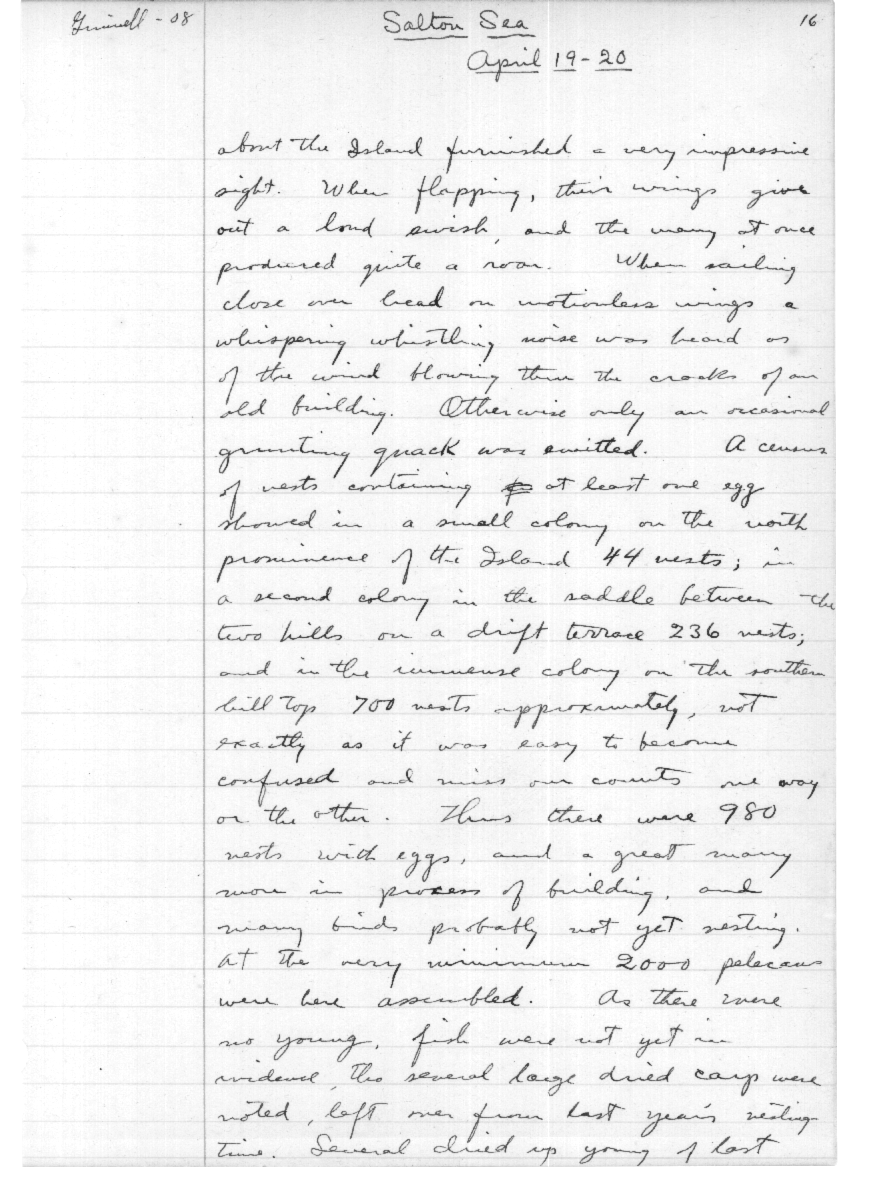 Grinnell - 08
Salton Sea
16
April 19-20
about the Island furnished a very impressive
sight. When flapping, their wings give
out a loud swish, and the many at once
produced quite a roar. When sailing
close over head on motionless wings a
whispering whistling noise was heard as
of the wind blowing thru the cracks of an
old building. Otherwise only an occasional
grunting quack was emitted. A census
of nests containing at least one egg
showed in a small colony on the north
prominence of the Island 44 nests; in
a second colony in the saddle between the
two hills on a drift terrace 236 nests;
and in the immense colony on the southern
hill top 700 nests approximately, not
exactly as it was easy to become
confused and miss our counts one way
or the other. Thus there were 980
nests with eggs, and a great many
more in process of building, and
many birds probably not yet nesting.
At the very minimum 2000 pelecans
were here assembled. As there were
no young, fish were not yet in
evidence, tho several large dried carp were
noted, left over from last year's nesting-
time. Several dried up young of last